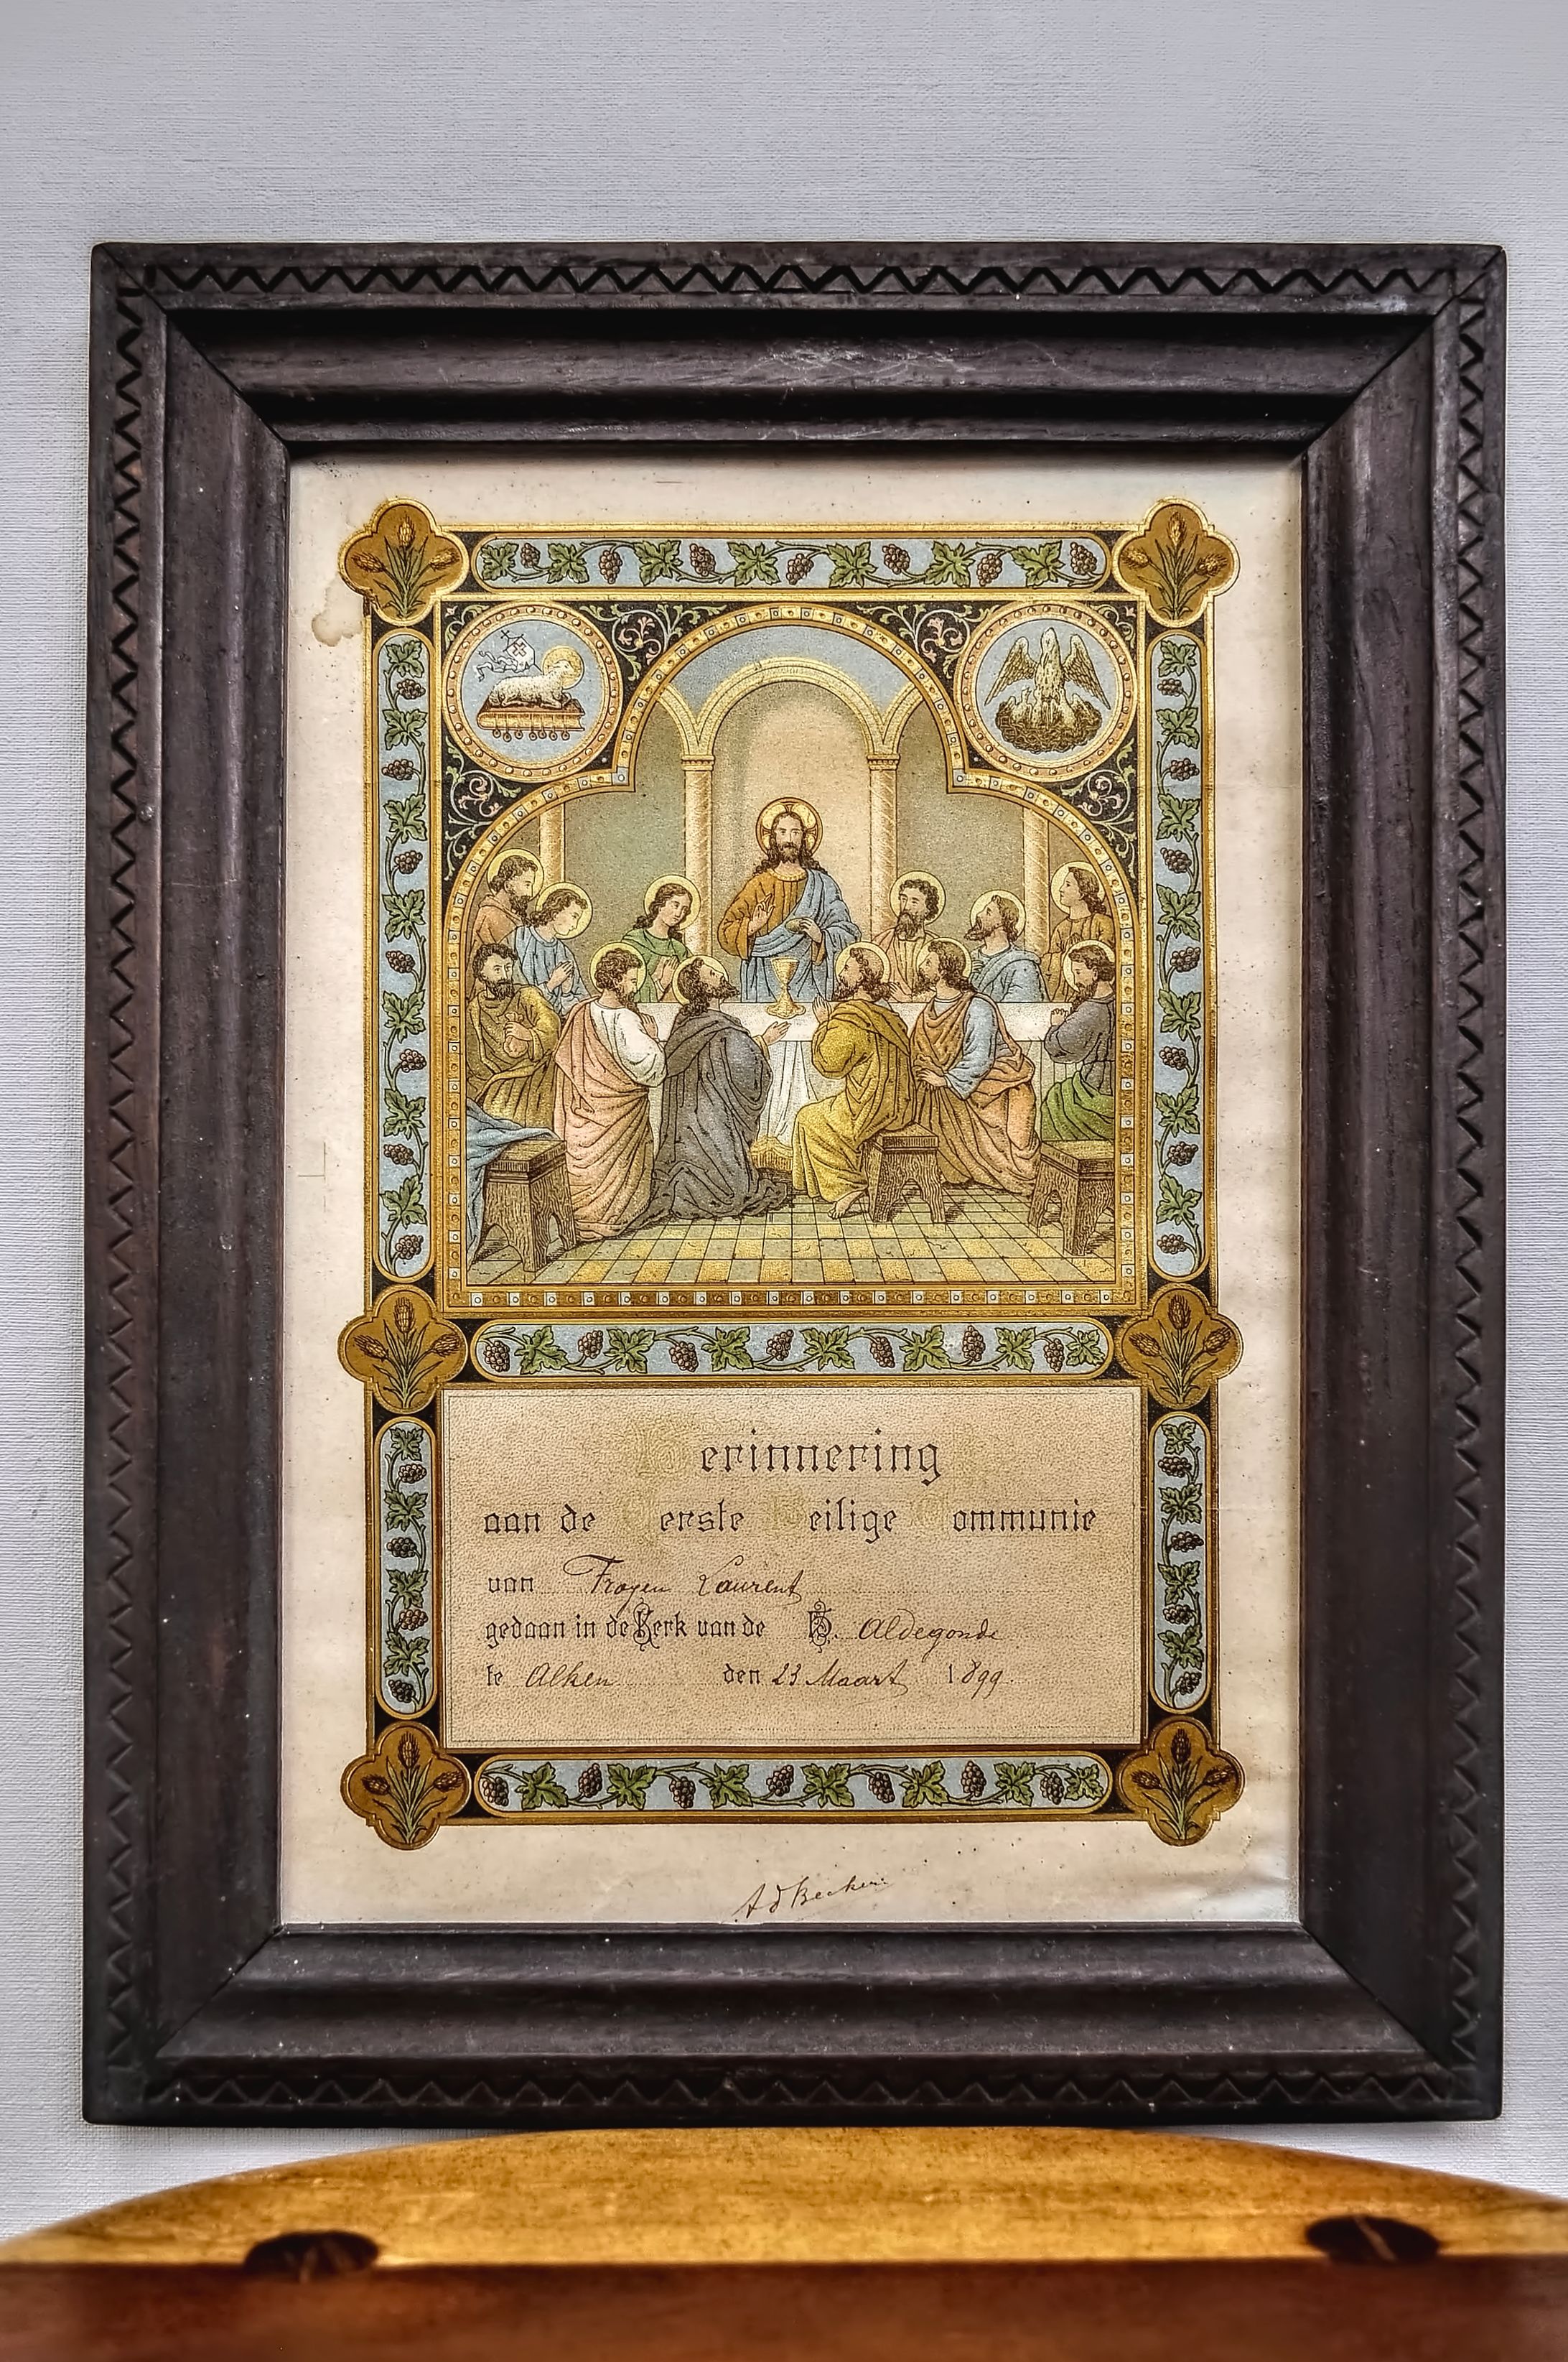 Herinnering
aan de Eerste Heilige Communie
van Froyen Laurent
gedaan in de Kerk van de H. Aldegonde
te Alken den 23 Maart 1899.